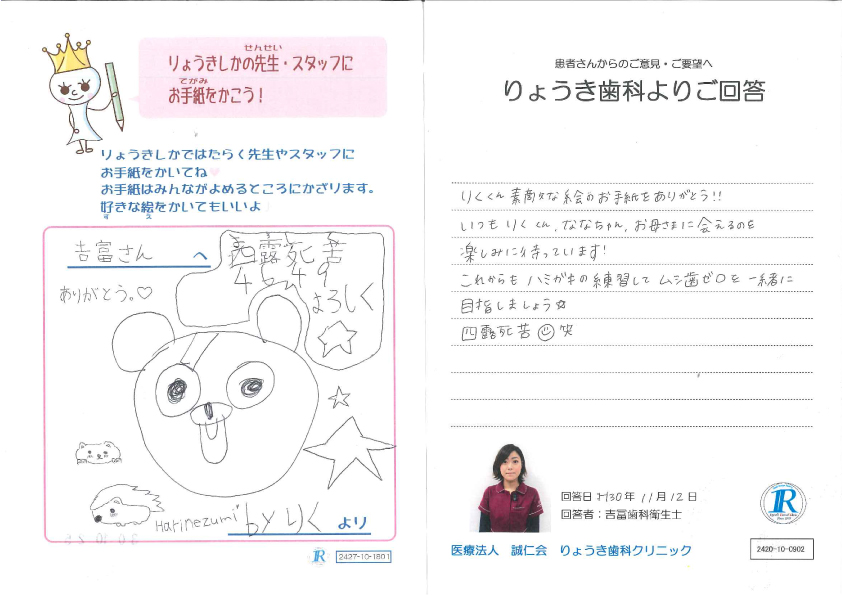 せんせい
りょうきしかの先生・スタッフに
てがみ
お手紙をかこう！
りょうきしかではたらく先生やスタッフに
お手紙をかいてね♥
お手紙はみんながよめるところにかざります。
好きな絵をかいてもいいよ
す え
吉冨さん へ
ありがとう。♡
四露死苦
4 6 4 9
よろしく
Harinezumi
by りく より
R
2427-10-1801
患者さんからのご意見・ご要望へ
りょうき歯科よりご回答
りくくん 素敵な絵のお手紙をありがとう!!
いつも りくくん、ななちゃん、お母さまに会えるのを
楽しみに待っています!
これからも ハミガキの練習して ムシ歯ゼロを一緒に
目指しましょう☆
四露死苦 ☺ 笑
回答日 H30年 11月 12日
回答者：吉冨歯科衛生士
R
医療法人 誠仁会 りょうき歯科クリニック
2420-10-0902